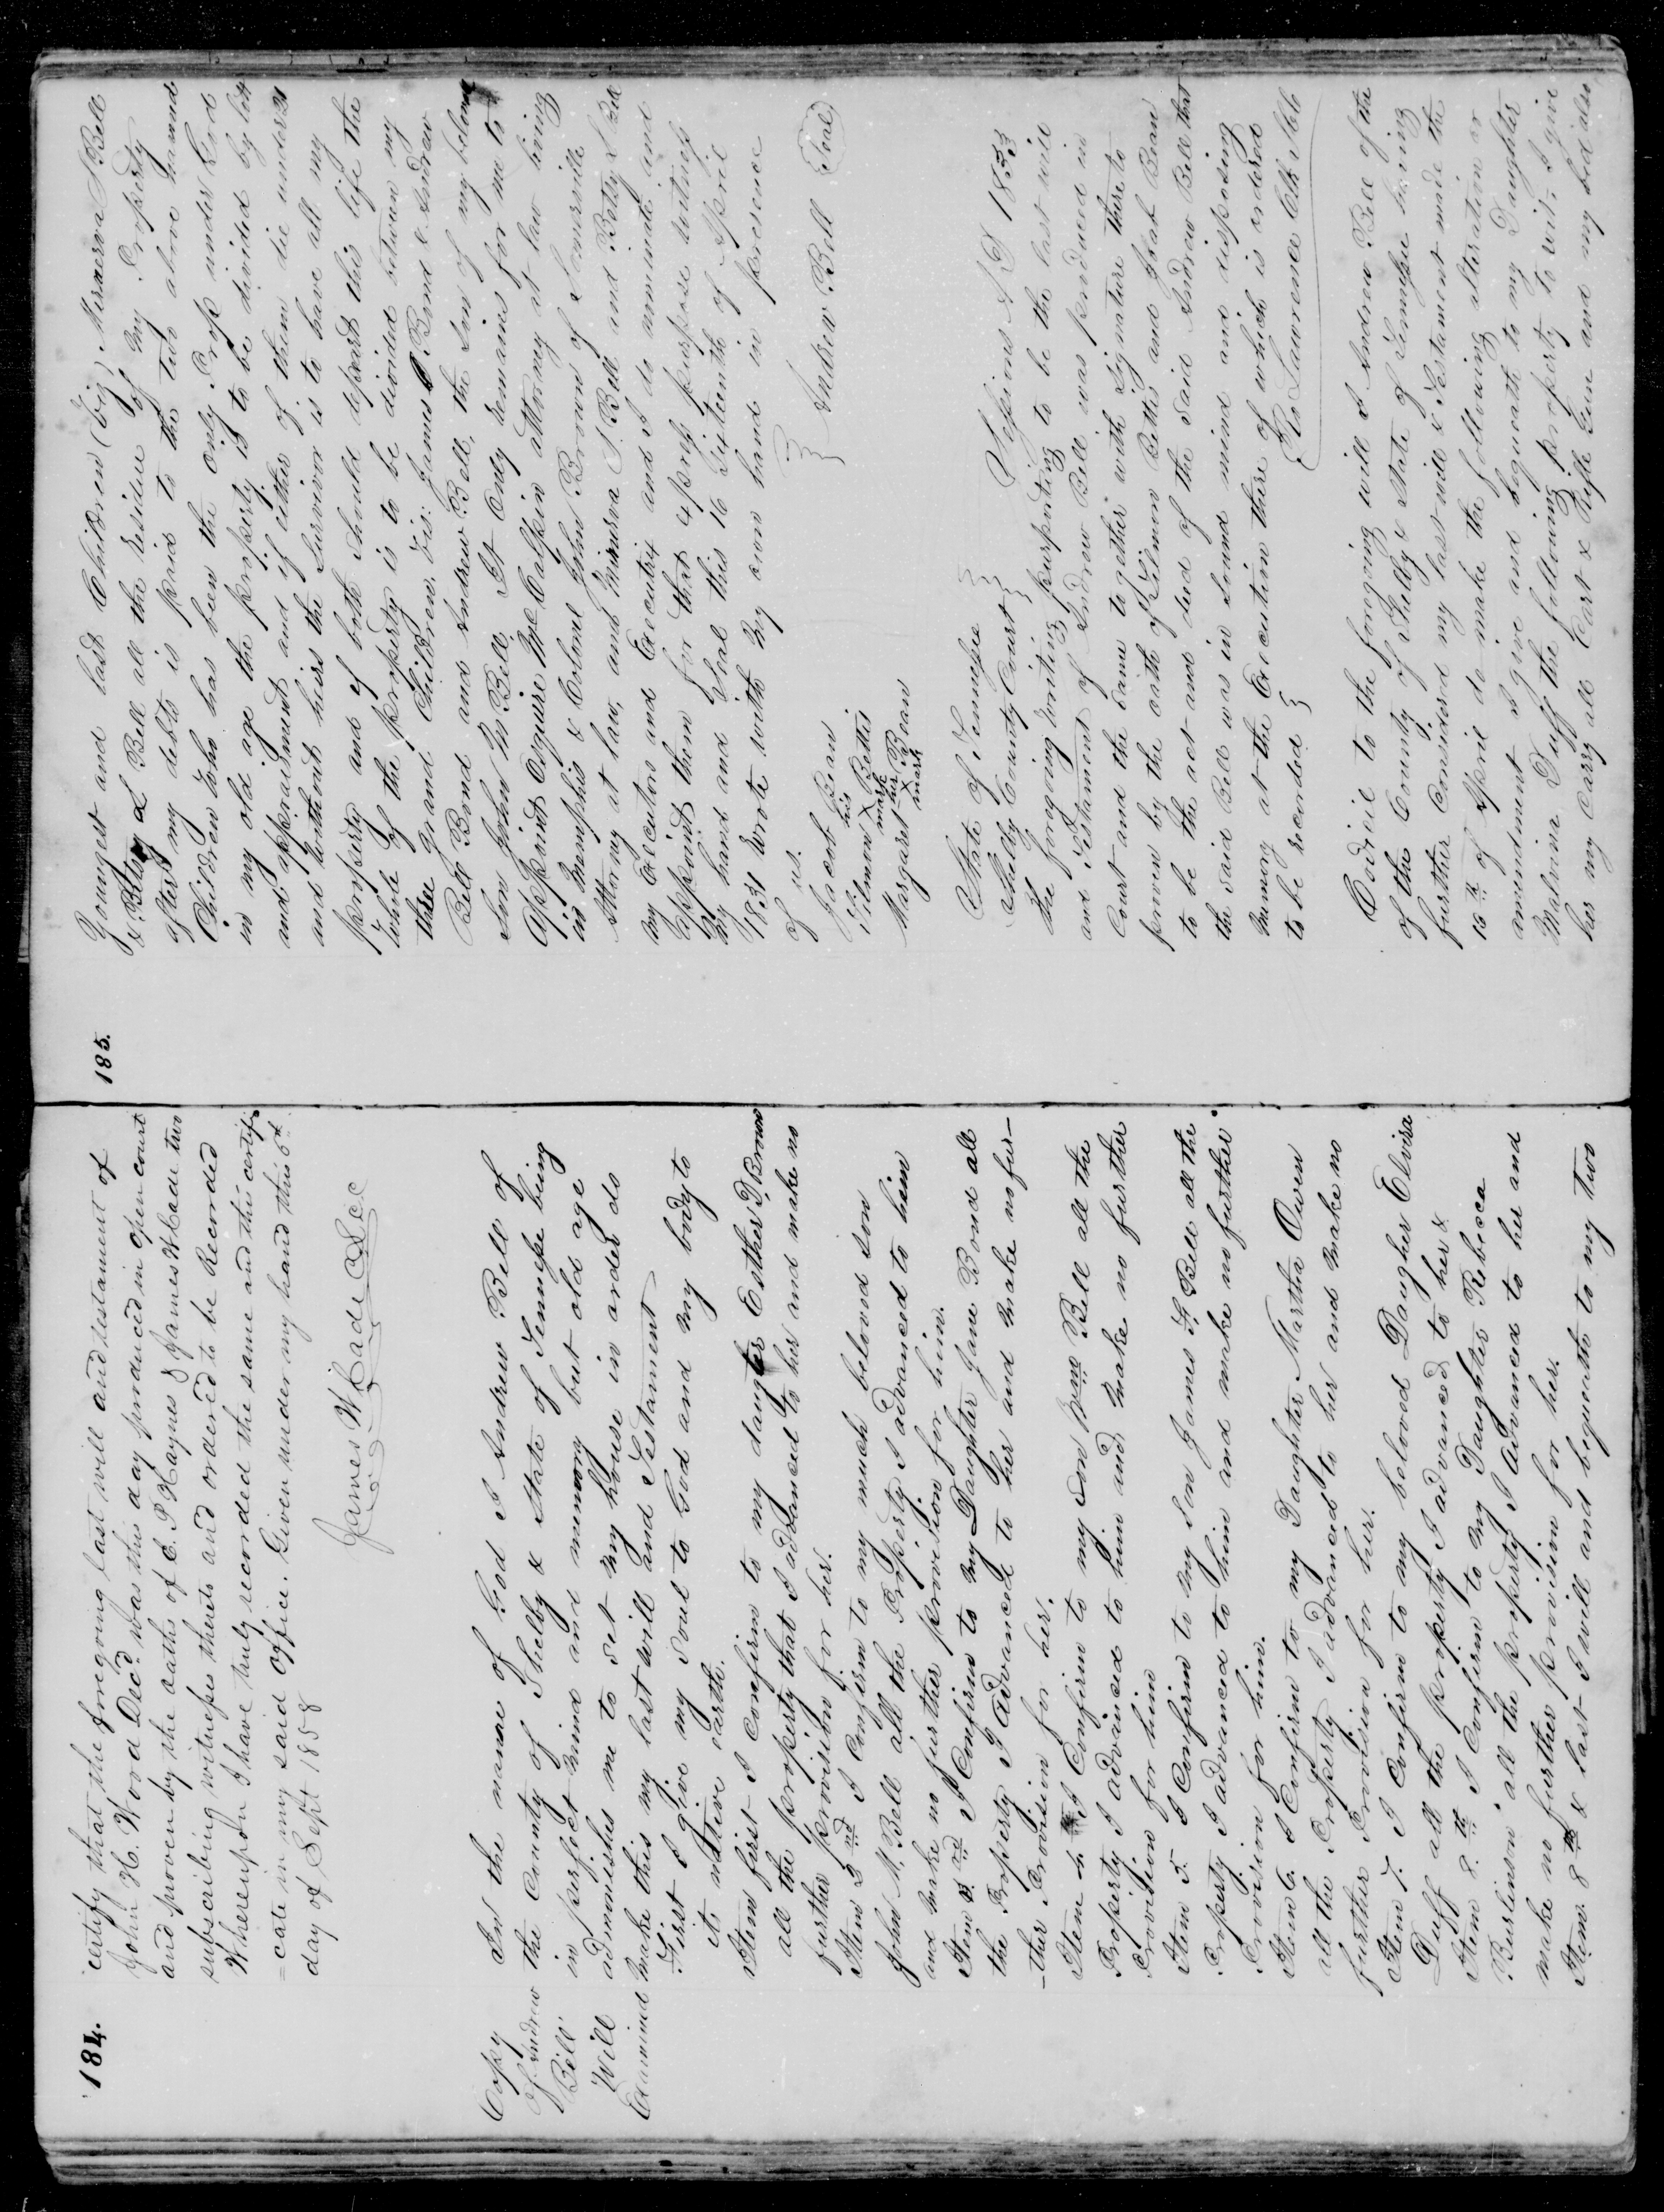 184.
certify that the foregoing last will and testament of
John H. Wood Decd was this day produced in open court
and proven by the oaths of E. P. Haynes & James Wade two
subscribing witnesses thereto and ordered to be Recorded
Whereupon I have truly recorded the same and this certifi
=cate in my said office. Given under my hand this 6th
day of Sept 1858
James W
Copy
of Andrew
Bell
Will
Examined
In the name of God I Andrew Bell of
the County of Shelby & State of Tennessee being
in perfect mind and memory but old age
admonishes me to set my house in order do
make this my last will and Testament
First I give my soul to God and my body to
its native earth.
Item first I confirm to my daughter Esther D, Brown
all the property that I advanced to her and make no
further provision for her.
Item 2nd I Confirm to my much beloved son
John M. Bell all the Property I advanced to him
and make no further provision for him.
Item 3rd I Confirm to my Daughter Jane Bond all
the Property I Advanced to her and make no fur-
-ther Provision for her.
Item 4. I Confirm to my Son Bell all the
Property I advanced to him and make no further
Provision for him
Item 5. I Confirm to my son James F. Bell all the
Property I advanced to him and make no further
Provision for him.
Item 6. I Confirm to my Daughter Martha Owen
all the Property I advanced to her and make no
further Provision for her.
Item 7. I Confirm to my beloved Daughter Elvira
Duff all the property I advanced to her &
Item 8.th I Confirm to my Daughter Rebecca
Burlinson all the property I advanced to her and
make no further provision for her.
Item. 8th & last I will and bequeath to my two
185.
Youngest and last Children (Viz) Minerva S Bell
& Betsy L Bell all the residue of my Property
after my debts is paid to the two above named
Children who has been the only Prop under God
in my old age the property is to be divided by lott
and appraisment and if either of them die under 21
and without heirs the Survivor is to have all my
property and if both should depart this life the
whole of the property is to be divided between my
three grand Children, Vis: James Bond & Andrew
Bell Bond and Andrew Bell, the Son of my beloved
Son John M Bell It Only remains for me to
Appoint Esquire McCalpin attorney at law living
in Memphis & Colonel John Brown of Somerville
Attorney at law, and Minerva S. Bell and Betsy L Bell
my Executors and Executrix and I do nominate and
appoint them for that express purpose witness
my hand and Seal this 16 Sixteenth of April
1831 wrote with my own hand in presence
of us.
Jacob Bean
Tilmon his X mark Bettis
Margaret her X mark Bean
Andrew Bell (Seal)
State of Tennessee
Shelby County Court
Sessions A D 1833
the foregoing writing purporting to be the last will
and Testament of Andrew Bell was produced in
Court and the same together with signature thereto
proven by the oath of Tilmon Bettis and Jacob Bean
to be the act and deed of the said Andrew Bell that
the said Bell was in sound mind and disposing
memory at the Execution there of which is ordered
to be recorded
Ro Lawrence Clk
Codicil to the foregoing will I Andrew Bell of the
of the County of Shelby & State of Tennessee having
further Considered my last will & Testament made the
16th of April do make the following alteration or
amendment I give and bequeath to my Daughter
Malvina Duff the following property to wit: I give
her my Carry all Cart & Rifle Gun and my bed also